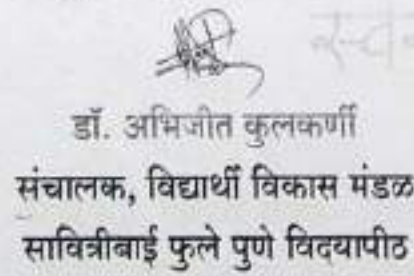 डॉ. अभिजीत कुलकर्णी
संचालक, विद्यार्थी विकास मंडळ
सावित्रीबाई फुले पुणे विदयापीठ